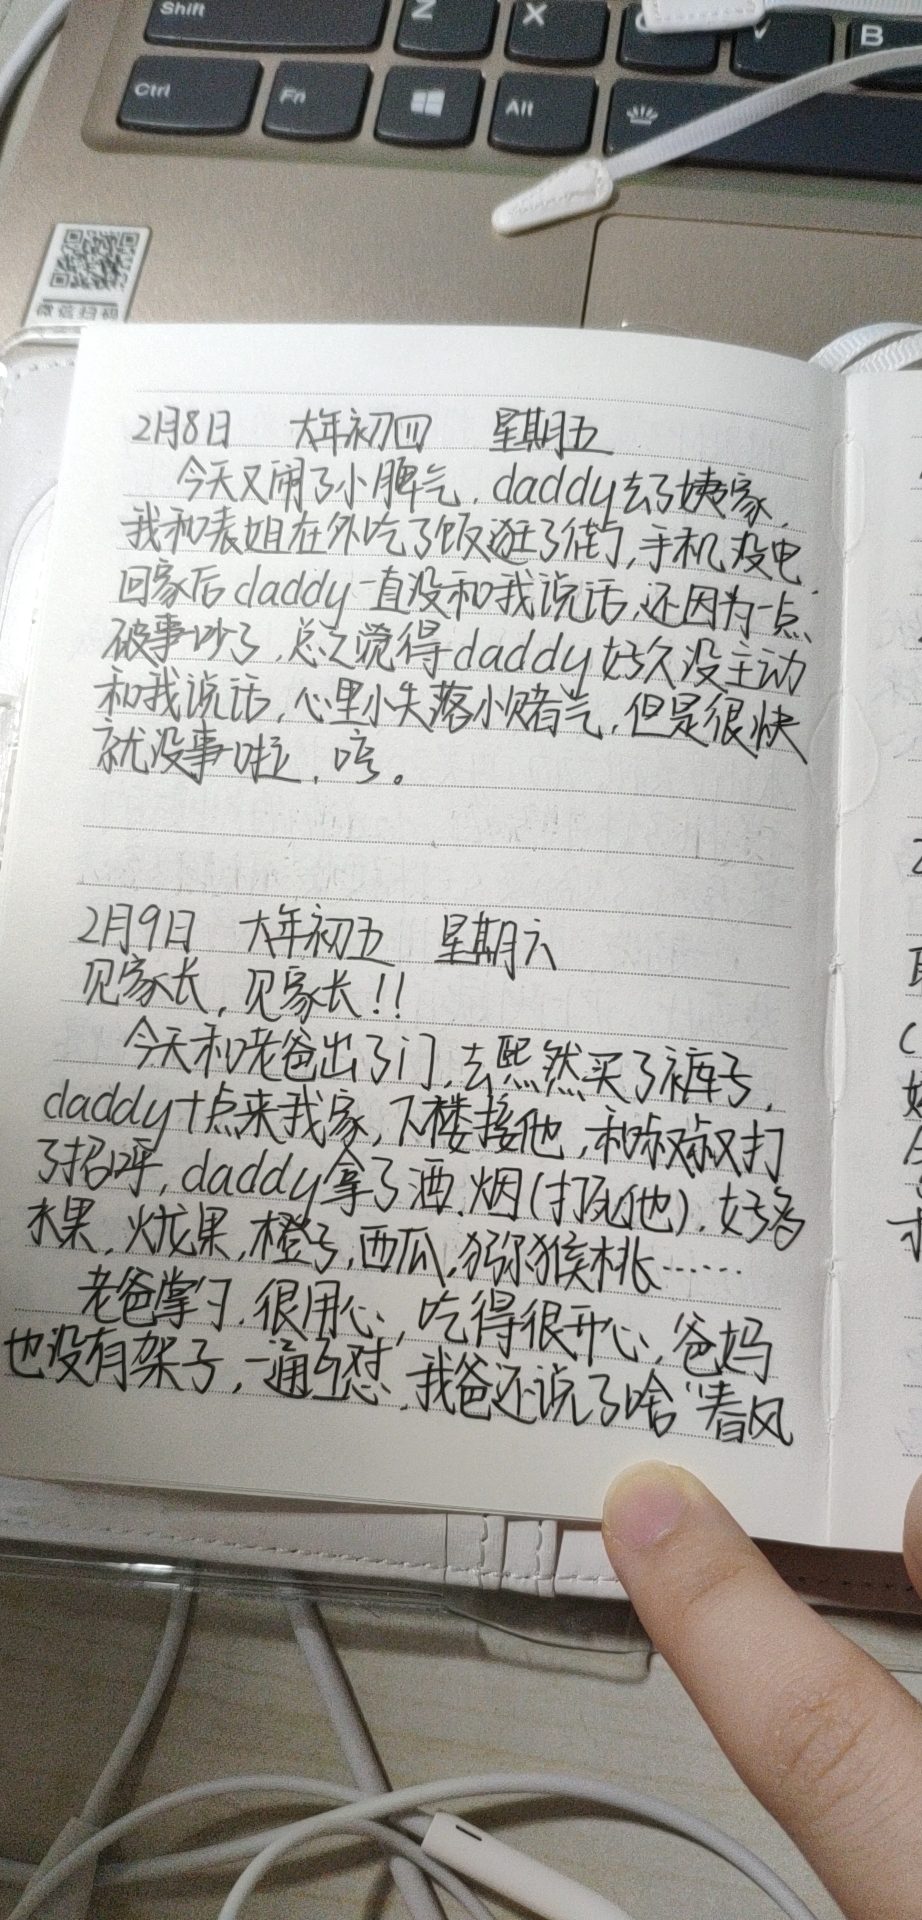 Shift
Z
X
V
B
Ctrl
Fn
Alt
微信扫码
2月8日 大年初四 星期五
今天又闹了小脾气，daddy去了姨家，
我和表姐在外吃了饭逛了街，手机没电，
回家后daddy一直没和我说话，还因为一点
破事吵了，总之觉得daddy好久没主动
和我说话，心里小失落小赌气，但是很快
就没事啦，哼。
2月9日 大年初五 星期六
见家长，见家长！！
今天和老爸出了门，去熙然买了裤子，
daddy十点来我家，下楼接他，和叔叔打
了招呼，daddy拿了酒、烟（打死他），好多
水果，火龙果，橙子，西瓜，猕猴桃……
老爸掌勺，很用心，吃得很开心，爸妈
也没有架子，一通互怼，我爸还说了啥“春风